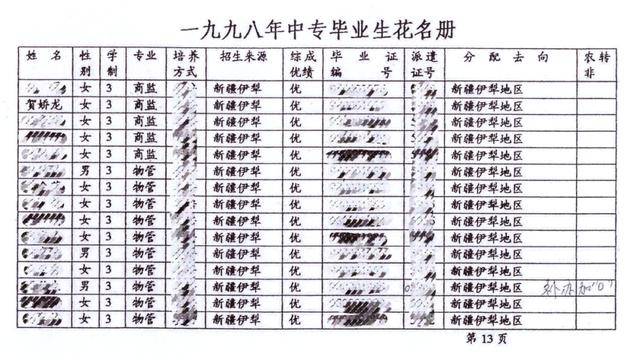 一九九八年中专毕业生花名册
姓 名 性 学 专业 培养 招生来源 综成 毕 业 证 派遣 分 配 去 向 农转
别 制 方式 优绩 编 号 证号 非
女 3 商监 新疆伊犁 优 新疆伊犁地区
贺娇龙 女 3 商监 新疆伊犁 优 新疆伊犁地区
女 3 商监 新疆伊犁 优 新疆伊犁地区
女 3 商监 新疆伊犁 优 新疆伊犁地区
女 3 商监 新疆伊犁 优 新疆伊犁地区
男 3 物管 新疆伊犁 优 新疆伊犁地区
女 3 物管 新疆伊犁 优 新疆伊犁地区
女 3 物管 新疆伊犁 优 新疆伊犁地区
女 3 物管 新疆伊犁 优 新疆伊犁地区
女 3 物管 新疆伊犁 优 新疆伊犁地区
男 3 物管 新疆伊犁 优 新疆伊犁地区
女 3 物管 新疆伊犁 优 新疆伊犁地区
男 3 物管 新疆伊犁 优 新疆伊犁地区 补办加"0"
女 3 物管 新疆伊犁 优 新疆伊犁地区
女 3 物管 新疆伊犁 优 新疆伊犁地区
第 13 页